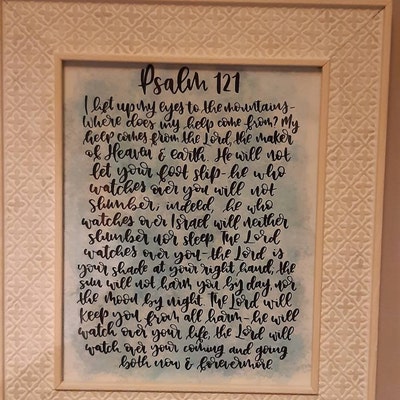 Psalm 121
I lift up my eyes to the mountains-
where does my help come from? My
help comes from the Lord, the maker
of Heaven & earth. He will not
let your foot slip-he who
watches over you will not
slumber; indeed, he who
watches over Israel will neither
slumber nor sleep. The Lord
watches over you-the Lord is
your shade at your right hand; the
sun will not harm you by day, nor
the moon by night. The Lord will
keep you from all harm-he will
watch over your life; the Lord will
watch over your coming and going
both now & forevermore